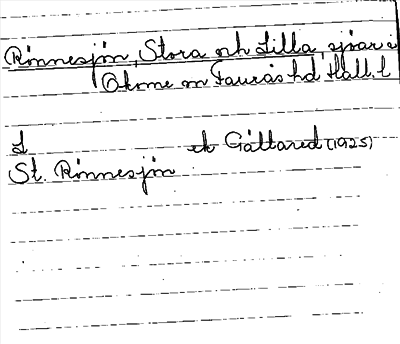 Rinnesjön, Stora och Lilla, sjöar i
Okome sn Faurås hd Hall. l
L
St. Rinnesjön ek Gällared (1925)